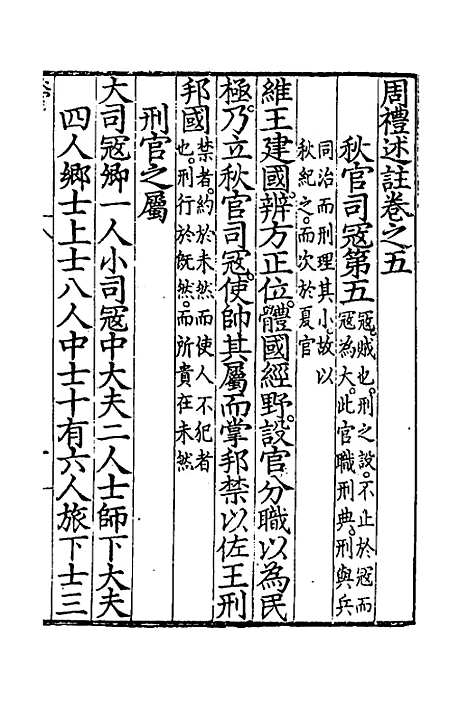 周禮述註卷之五
秋官司冦第五
冦賊也。刑之設。不止於冦而
冦為大。此官職刑典。刑與兵
同治而刑理其小。故以
秋紀之。而次於夏官
維王建國。辨方正位。體國經野。設官分職以為民
極。乃立秋官司冦。使帥其屬而掌邦禁以佐王刑
邦國
禁者。約於未然而使人不犯者
也。刑行於既然。而所貴在未然
刑官之屬
大司冦卿一人小司冦中大夫二人士師下大夫
四人鄉士上士八人中士十有六人旅下士三